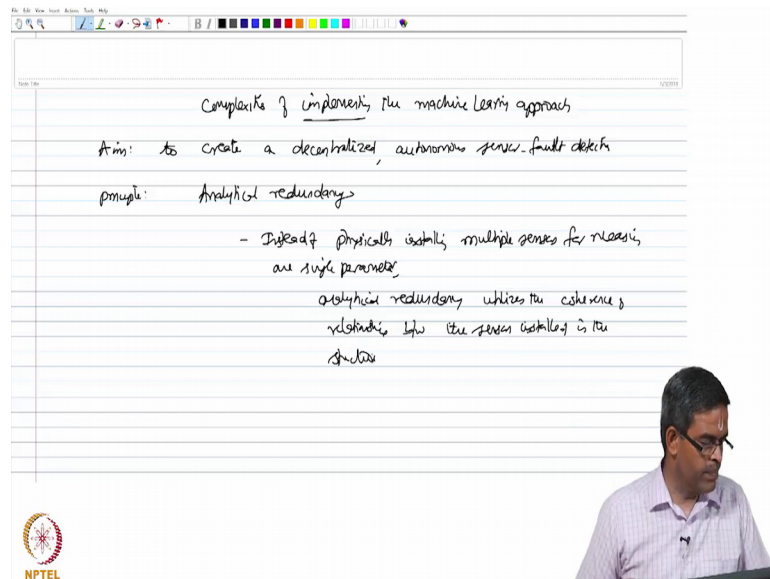 File Edit View Insert Actions Tools Help
B I
Note Title
Complexities of implementing the machine learning approach
Aim: to create a decentralized, autonomous sensor-fault detection
principle: Analytical redundancy
- Instead of physically installing multiple sensors for measuring
one single parameter,
analytical redundancy utilizes the coherence &
relationship b/w the sensors installed in the
structure
NPTEL